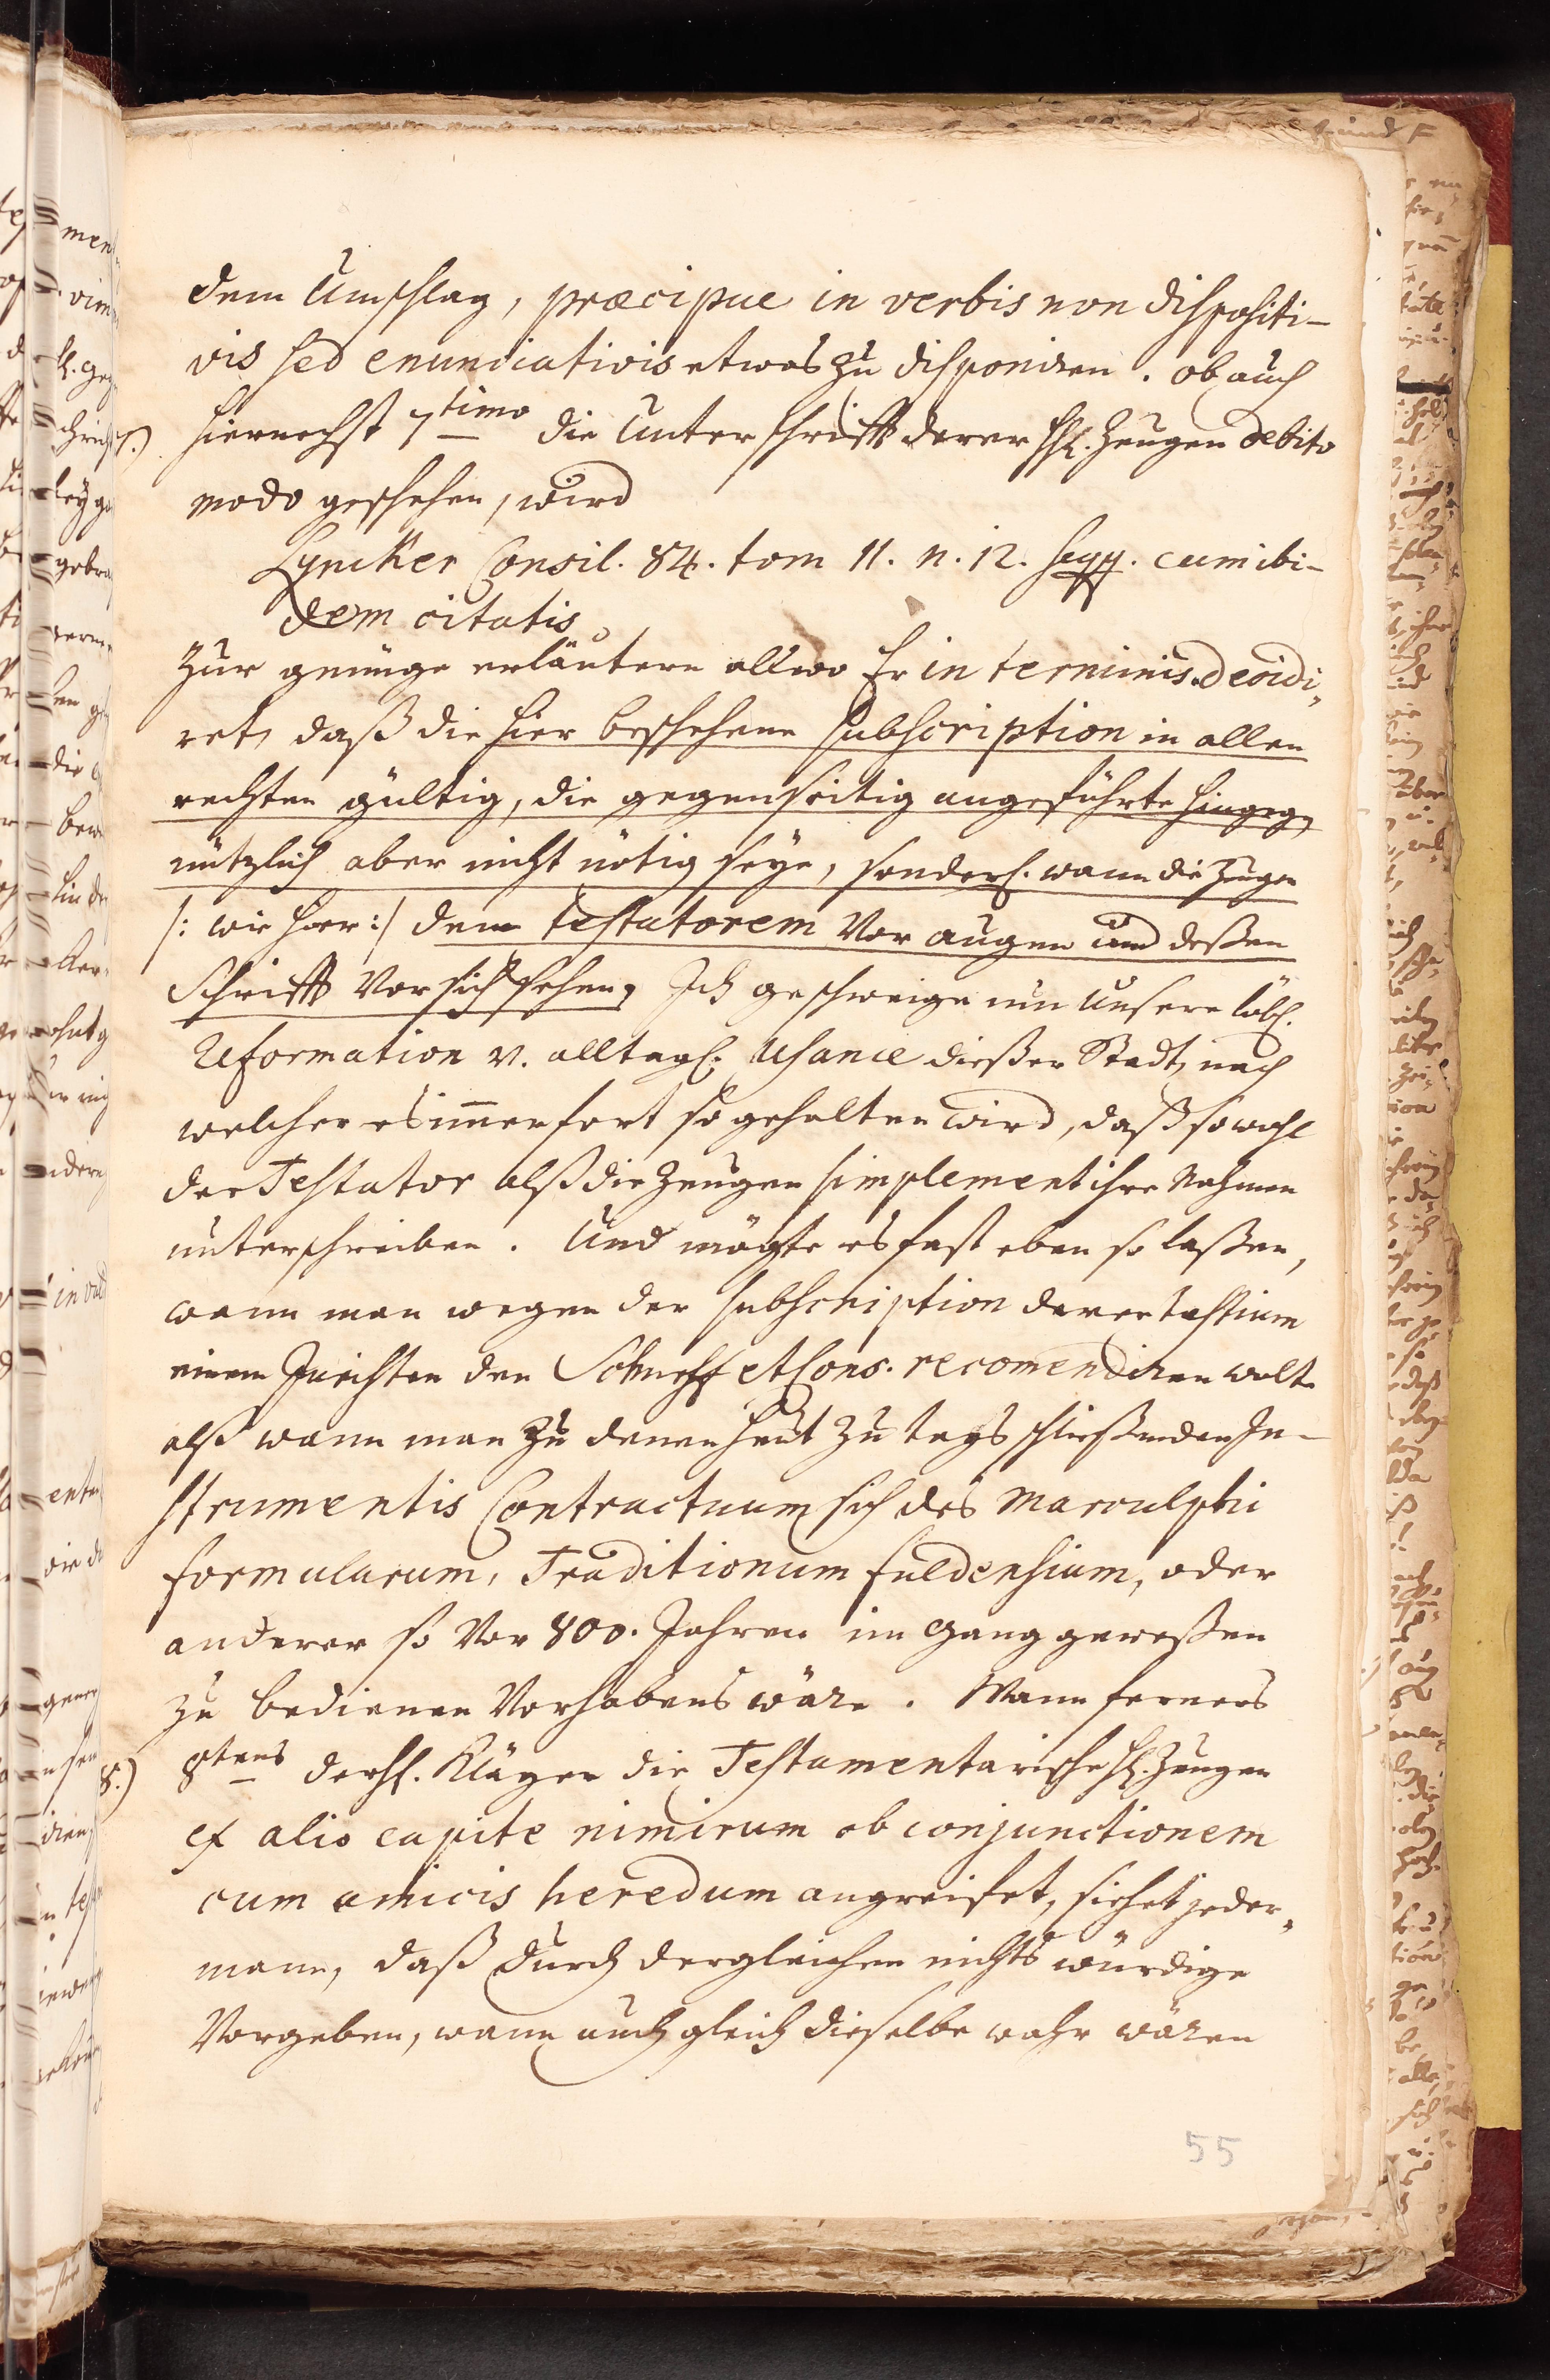 dem Umschlag, præcipue in verbis non dispositi-
vis sed enunciativis etwas zu disponiren. ob auch
7.) hiernechst 7timo die Unterschrifft derer HH. Zeugen debito
modo geschehen, wird
Lyncker Consil. 84. tom 11. n. 12. seqq. cum ibi-
dem citatis
zur genüge erläutern allwo Er in terminis decidi-
ret, daß die hier beschehene subscription in allen
rechten gültig, die gegenseitig angeführte hingegen
nützlich aber nicht nötig seye, sonderl. wann die Zeugen
/: wie hier :/ dem testatorem Vor augen und deßen
Schrifft Vor sich sehen, Ich geschweige nun Unsere löbl.
Reformation u. alltagl. Usance dießer Stadt, nach
welcher es immerfort so gehalten wird, daß sowohl
der Testator alß die Zeugen simplement ihre Nahmen
unterschreiben. Und mögte es fast eben so laßen,
wann man wegen der subscription derer testium
einem Juristen den et Cons. recomendiren wolte
alß wann man zu denen heut zu tags schließenden In-
strumentis Contractuum sich des Marculphi
formularum, Traditionum fuldensium, oder
anderer so Vor 800. Jahren im gang geweßen
zu bedienen Vorhabens wäre. Wann ferners
8.) 8tens der H. Kläger die Testamentarische H. Zeugen
ex alio capite nimirum ob conjunctionem
cum amicis heredum angreifet, siehet jeder-
mann, daß durch dergleichen nichts würdige
Vorgeben, wann auch gleich dieselbe wahr wären
55